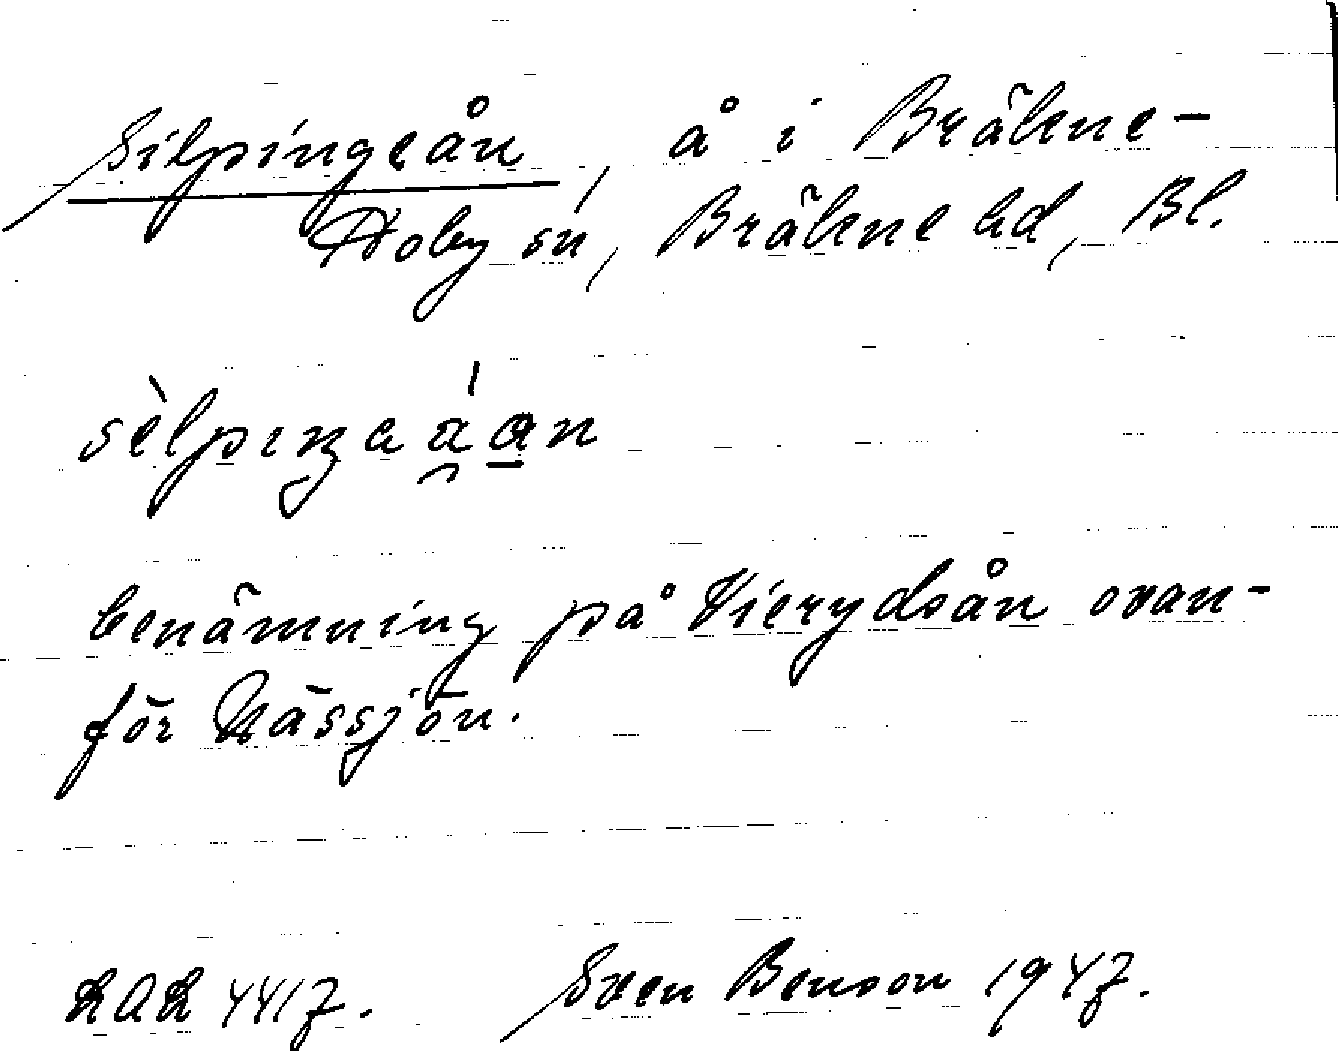 Silpingeån, å i Bräkne-
Hoby sn, Bräkne hd, Bl.
sèlpiŋaáan
benämning på Vierydsån ovan-
för Nässjön.
LAL 4417. Sven Benson 1947.